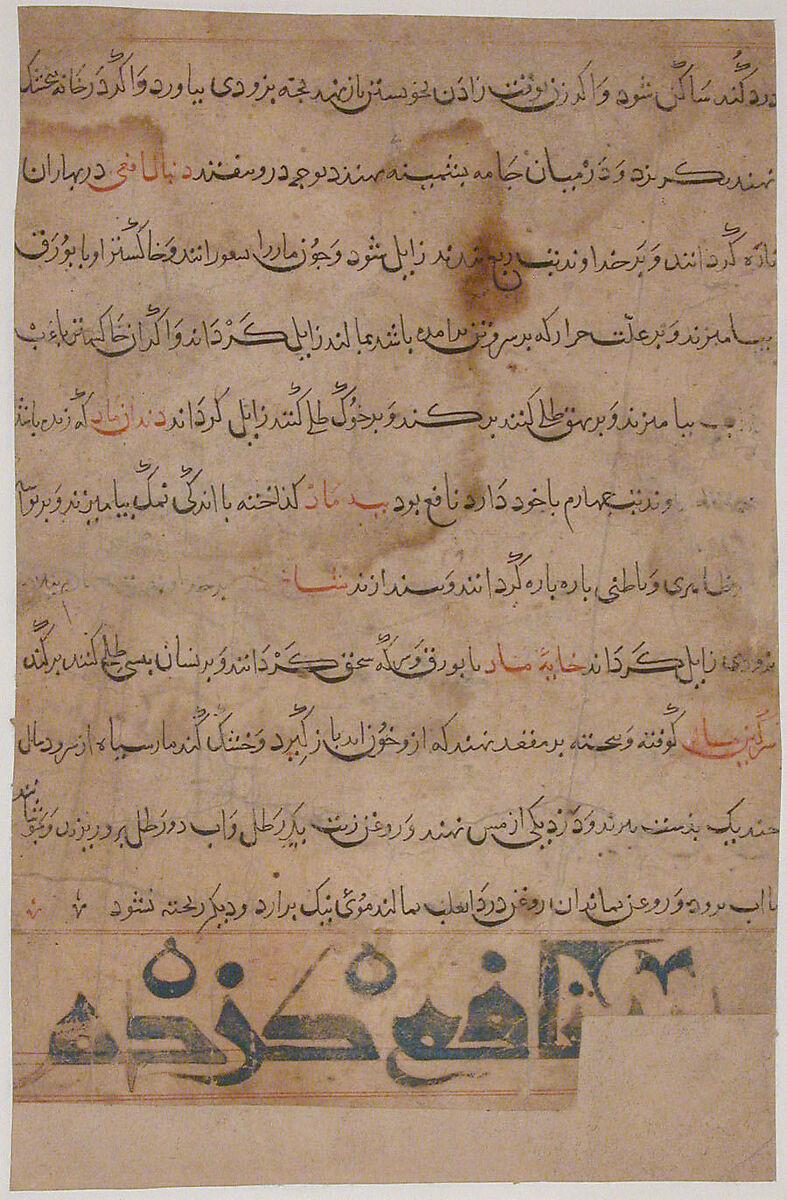 درد کند ساکن شود واکر زن بوقت زادن بخویشتن باز نهد بچه بزودی بیاورد واکر در خانه بخشک
نهند بکریزد ودر میان جامه بشمینه نهند دیوجه درو نیفتد دنبال افعی در بهاران
تازه کردانند وبر خداوند تب ربع بندند زایل شود وجون مار را بسوزانند وخاکستر او با بورق
بیامیزند وبر علت حرار که بر سر وتن برامده باشد بمالند زایل کرداند واکر ان خاکستر با
بیامیزند وبر بهق طلی کنند برکند وبر خوک طلی کنند زایل کرداند دندان مار که زنده باشد
تب جهارم با خود دارد نافع بود بیه مار کداخته با اندکی نمک بیامیزند وبر
ظاهری وباطنی باره باره کردانند وبیندازند
بزودی زایل کرداند خایهٔ مار با بورق وسرکه سحق کردانند وبر نشان بیسی طلی کنند برکند
سرکین مار کوفته وبیخته بر مقعد نهند که ازو خون اید باز کیرد وخشک کند مار سیاه از سر ودنبال
جند یک بدست ببرند ودر دیکی از مس نهند وروغن زیت یکرطل واب دو رطل برو ریزند وبجوشانند
تا اب برود وروغن بماند ان روغن در داء الثعلب بمالند موی نیک برارد ودیکر ریخته نشود
منافع کزده